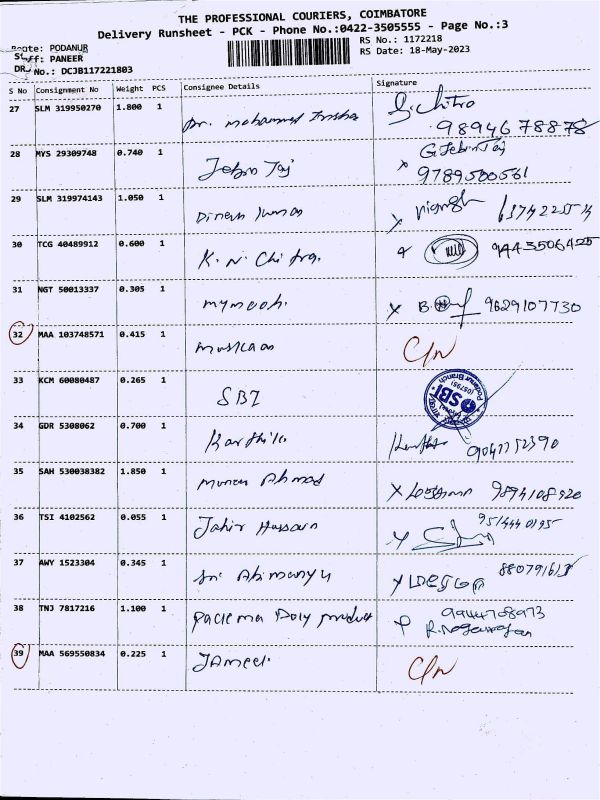 THE PROFESSIONAL COURIERS, COIMBATORE
Delivery Runsheet - PCK - Phone No.:0422-3505555 - Page No.:3
Route: PODANUR
RS No.: 1172218
Staff: PANEER
RS Date: 18-May-2023
DRS No.: DCJB117221803
S No Consignment No Weight PCS Consignee Details Signature
27 SLM 319950270 1.800 1 Dr. mohammed S. Chitra
9894678878
28 MYS 29309748 0.740 1 Jebin Taj G. Jebin Taj
x 9789500561
29 SLM 319974143 1.050 1 Dinesh kumar x
30 TCG 40489912 0.600 1 K. N. Chitra. 9443506425
31 NGT 50013337 0.305 1 mymoon. x 9629107730
32 MAA 103748571 0.415 1 muskaan C/n
33 KCM 60080487 0.265 1 SBI SBI
Podanur Branch
34 GDR 5308062 0.700 1 Karthik
35 SAH 530038382 1.850 1 Ahmad x 9894108920
36 TSI 4102562 0.055 1 Jahir Hussain
37 AWY 1523304 0.345 1 Sri Abimanyu
38 TNJ 7817216 1.100 1 Poly product 9944708973
R. Nagarajan
39 MAA 569550834 0.225 1 Jameel. C/n